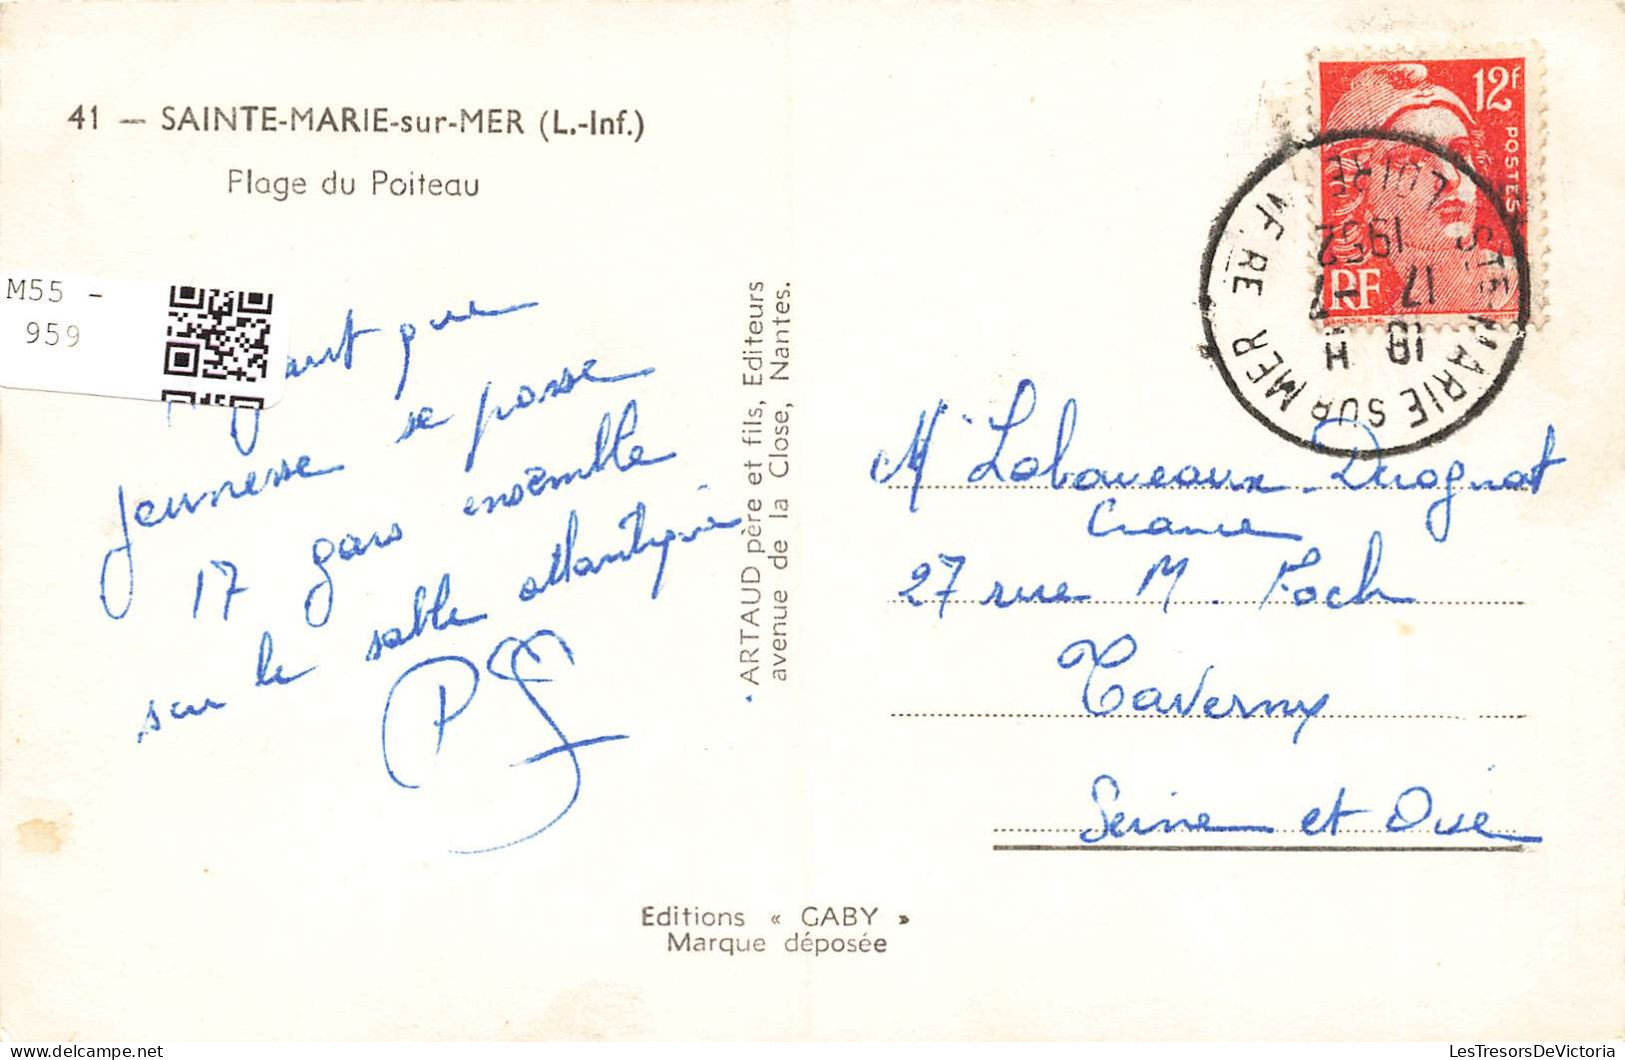 41 — SAINTE-MARIE-sur-MER (L.-Inf.)
Plage du Poiteau
M55 -
959
que
jeunesse se passe
17 gars ensemble
sur le sable atlantique
ARTAUD père et fils, Editeurs
avenue de la Close, Nantes.
Editions « GABY »
Marque déposée
12f
POSTES
RF
STE MARIE SUR MER
LOIRE INF.RE
18 H
17 - 7
1952
M
27 rue M. Foch
Taverny
Seine et Oise
LesTresorsDeVictoria